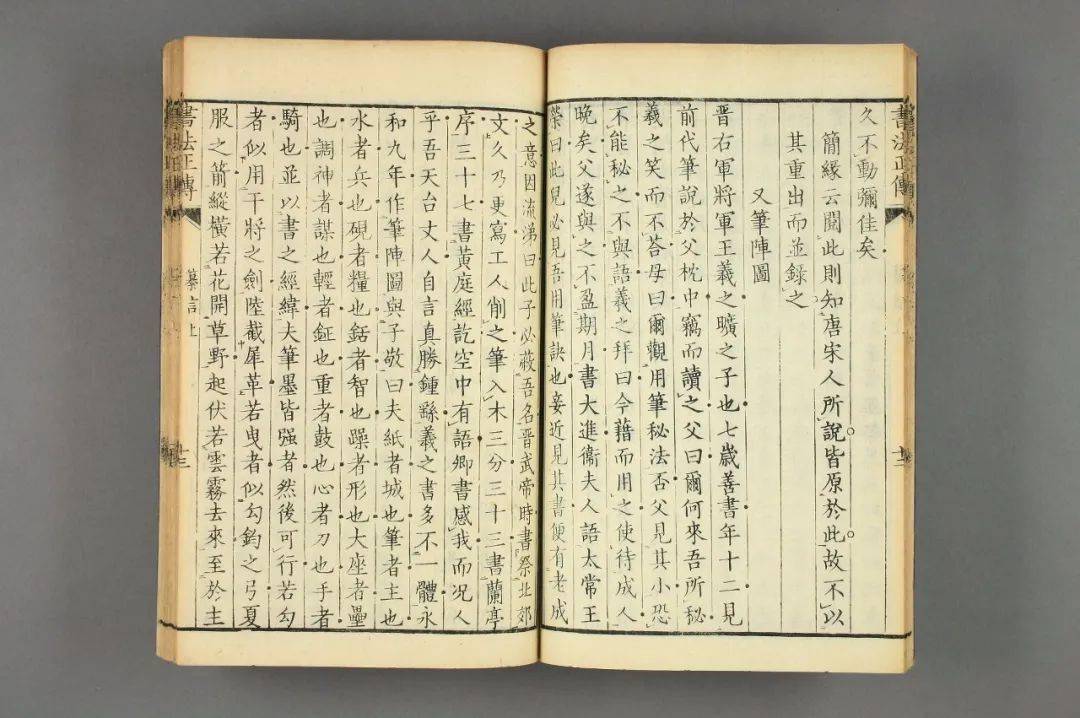 書法正傳
久不動彌佳矣
簡緣云閱此則知唐宋人所說皆原於此故不以
其重出而並錄之
又筆陣圖
晉右軍將軍王羲之曠之子也七歲善書年十二見
前代筆說於父枕中竊而讀之父曰爾何來吾所秘
羲之笑而不荅母曰爾觀用筆秘法否父見其小恐
不能秘之不與語羲之拜曰今藉而用之使待成人
晚矣父遂與之不盈期月書大進衛夫人語太常王
榮曰此兒必見吾用筆訣也妾近見其書便有老成
之意因流涕曰此子必蔽吾名晉武帝時書祭北郊
文久乃更寫工人削之筆入木三分三十三書蘭亭
序三十七書黃庭經訖空中有語卿書感我而況人
乎吾天台丈人自言真勝鍾繇羲之書多不一體永
和九年作筆陣圖與子敬曰夫紙者城也筆者主也
水者兵也硯者糧也鋸者智也躁者形也大座者壘
也調神者謀也輕者鉦也重者鼓也心者刀也手者
騎也並以書之經緯大筆墨皆強者然後可行若勾
者似用干將之劍陸截犀革若曳者似勾鈞之弓夏
服之箭縱橫若花開草野起伏若雲霧去來至於主
書法正傳
纂言上
十三